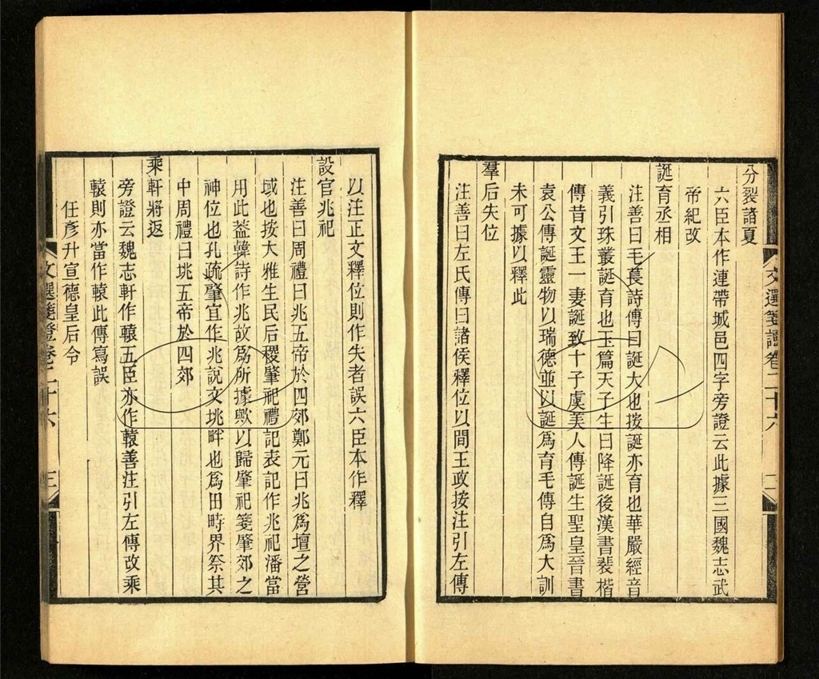 分裂諸夏
六臣本作連帶城邑四字旁證云此據三國魏志武
帝紀改
誕育丞相
注善曰毛萇詩傳曰誕大也按誕亦育也華嚴經音
義引珠叢誕育也玉篇天子生曰降誕後漢書裴楷
傳昔文王一妻誕致十子虞美人傳誕生聖皇晉書
袁公傳誕靈物以瑞德並以誕爲育毛傳自爲大訓
未可據以釋此
羣后失位
注善曰左氏傳曰諸侯釋位以間王政按注引左傳
文選箋證卷二十六
二
以注正文釋位則作失者誤六臣本作釋
設官兆祀
注善曰周禮曰兆五帝於四郊鄭元曰兆爲壇之營
域也按大雅生民后稷肇祀禮記表記作兆祀潘當
用此葢韓詩作兆故爲所據歟以歸肇祀箋肇郊之
神位也孔疏肇宜作兆說文垗畔也爲田時界祭其
中周禮曰垗五帝於四郊
乘軒將返
旁證云魏志軒作轅五臣亦作轅善注引左傳改乘
轅則亦當作轅此傳寫誤
任彥升宣德皇后令
文選箋證卷二十六
三